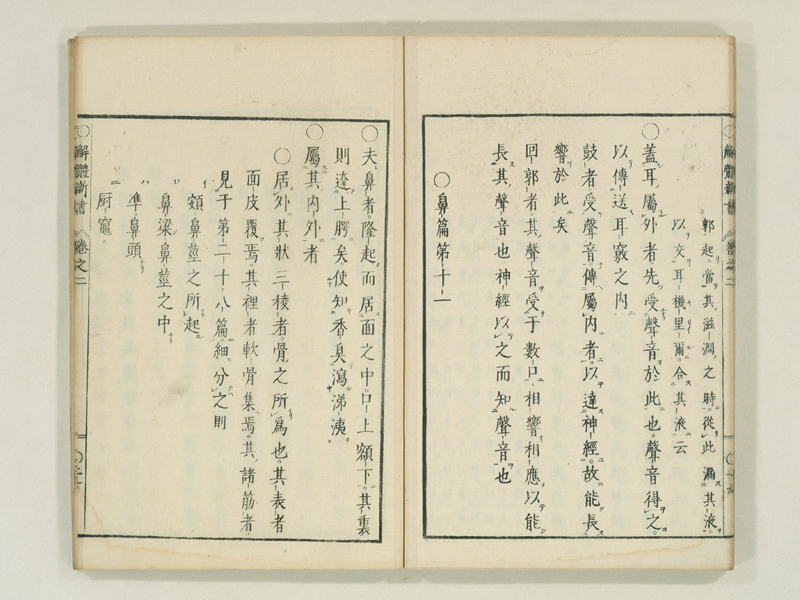 郭起當其滋潤之時從此漏其液
以交耳機里爾合其液云
○蓋耳屬外者先受聲音於此也聲音得之
以傳送耳竅之内
鼓者受聲音傳屬内者以達神經故能長
響於此矣
回郭者其聲音受于數口相響相應以能
長其聲音也神經以之而知聲音也
○鼻篇第十一
○夫鼻者隆起而居面之中口上額下其裏
則達上腭矣使知香臭瀉涕洟
○屬其内外者
○居外其狀三稜者骨之所爲也其表者
面皮覆焉其裡者軟骨集焉其諸筋者
見于第二十八篇細分之則
イ 頞鼻莖之所起
ロ 鼻梁鼻莖之中
ハ 準鼻頭
ニ 厨竈
○解體新書 卷之二
○解體新書 卷之二